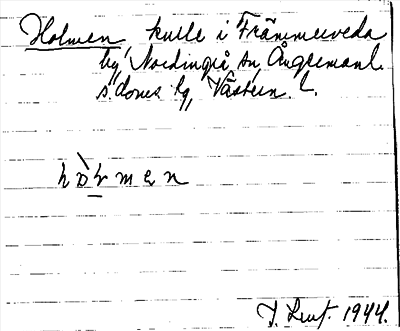 Holmen, kulle i Främmerveda
by, Nordingrå sn, Ångermanl.
s. doms. hg, Västern. L.
hòlmen
1944.